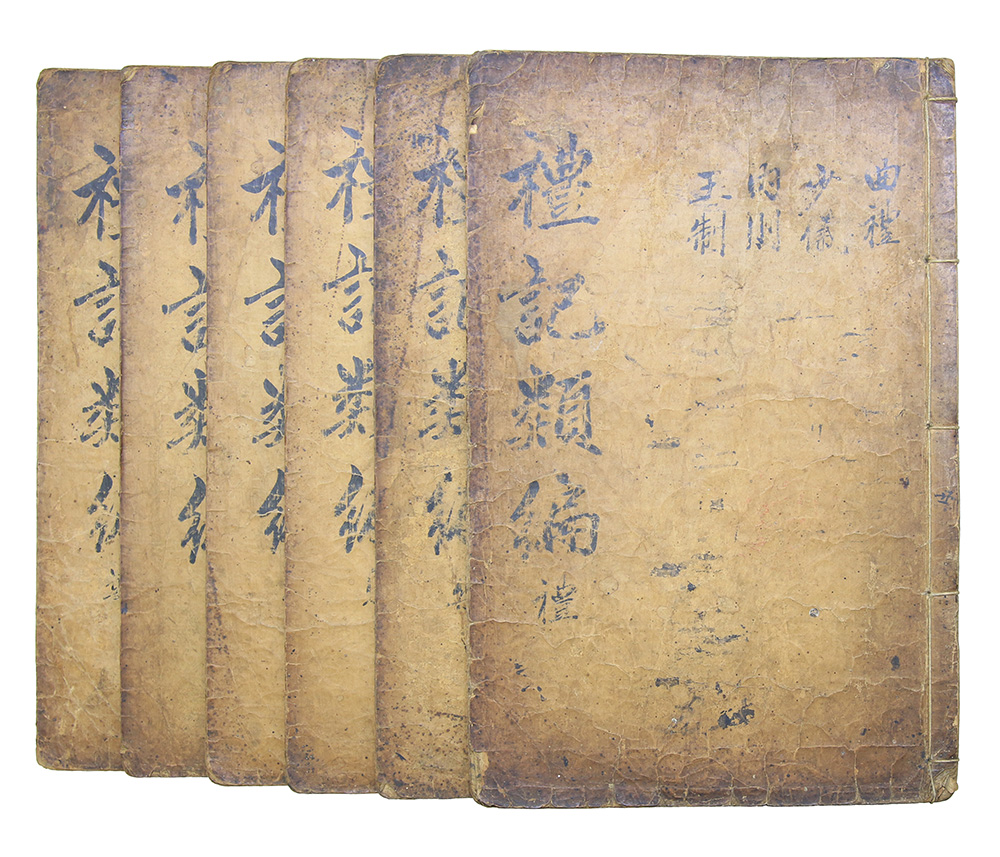 曲禮
少儀
內則
王制
禮記類編 禮
禮記類
禮記類
禮記類
禮記類
禮記類